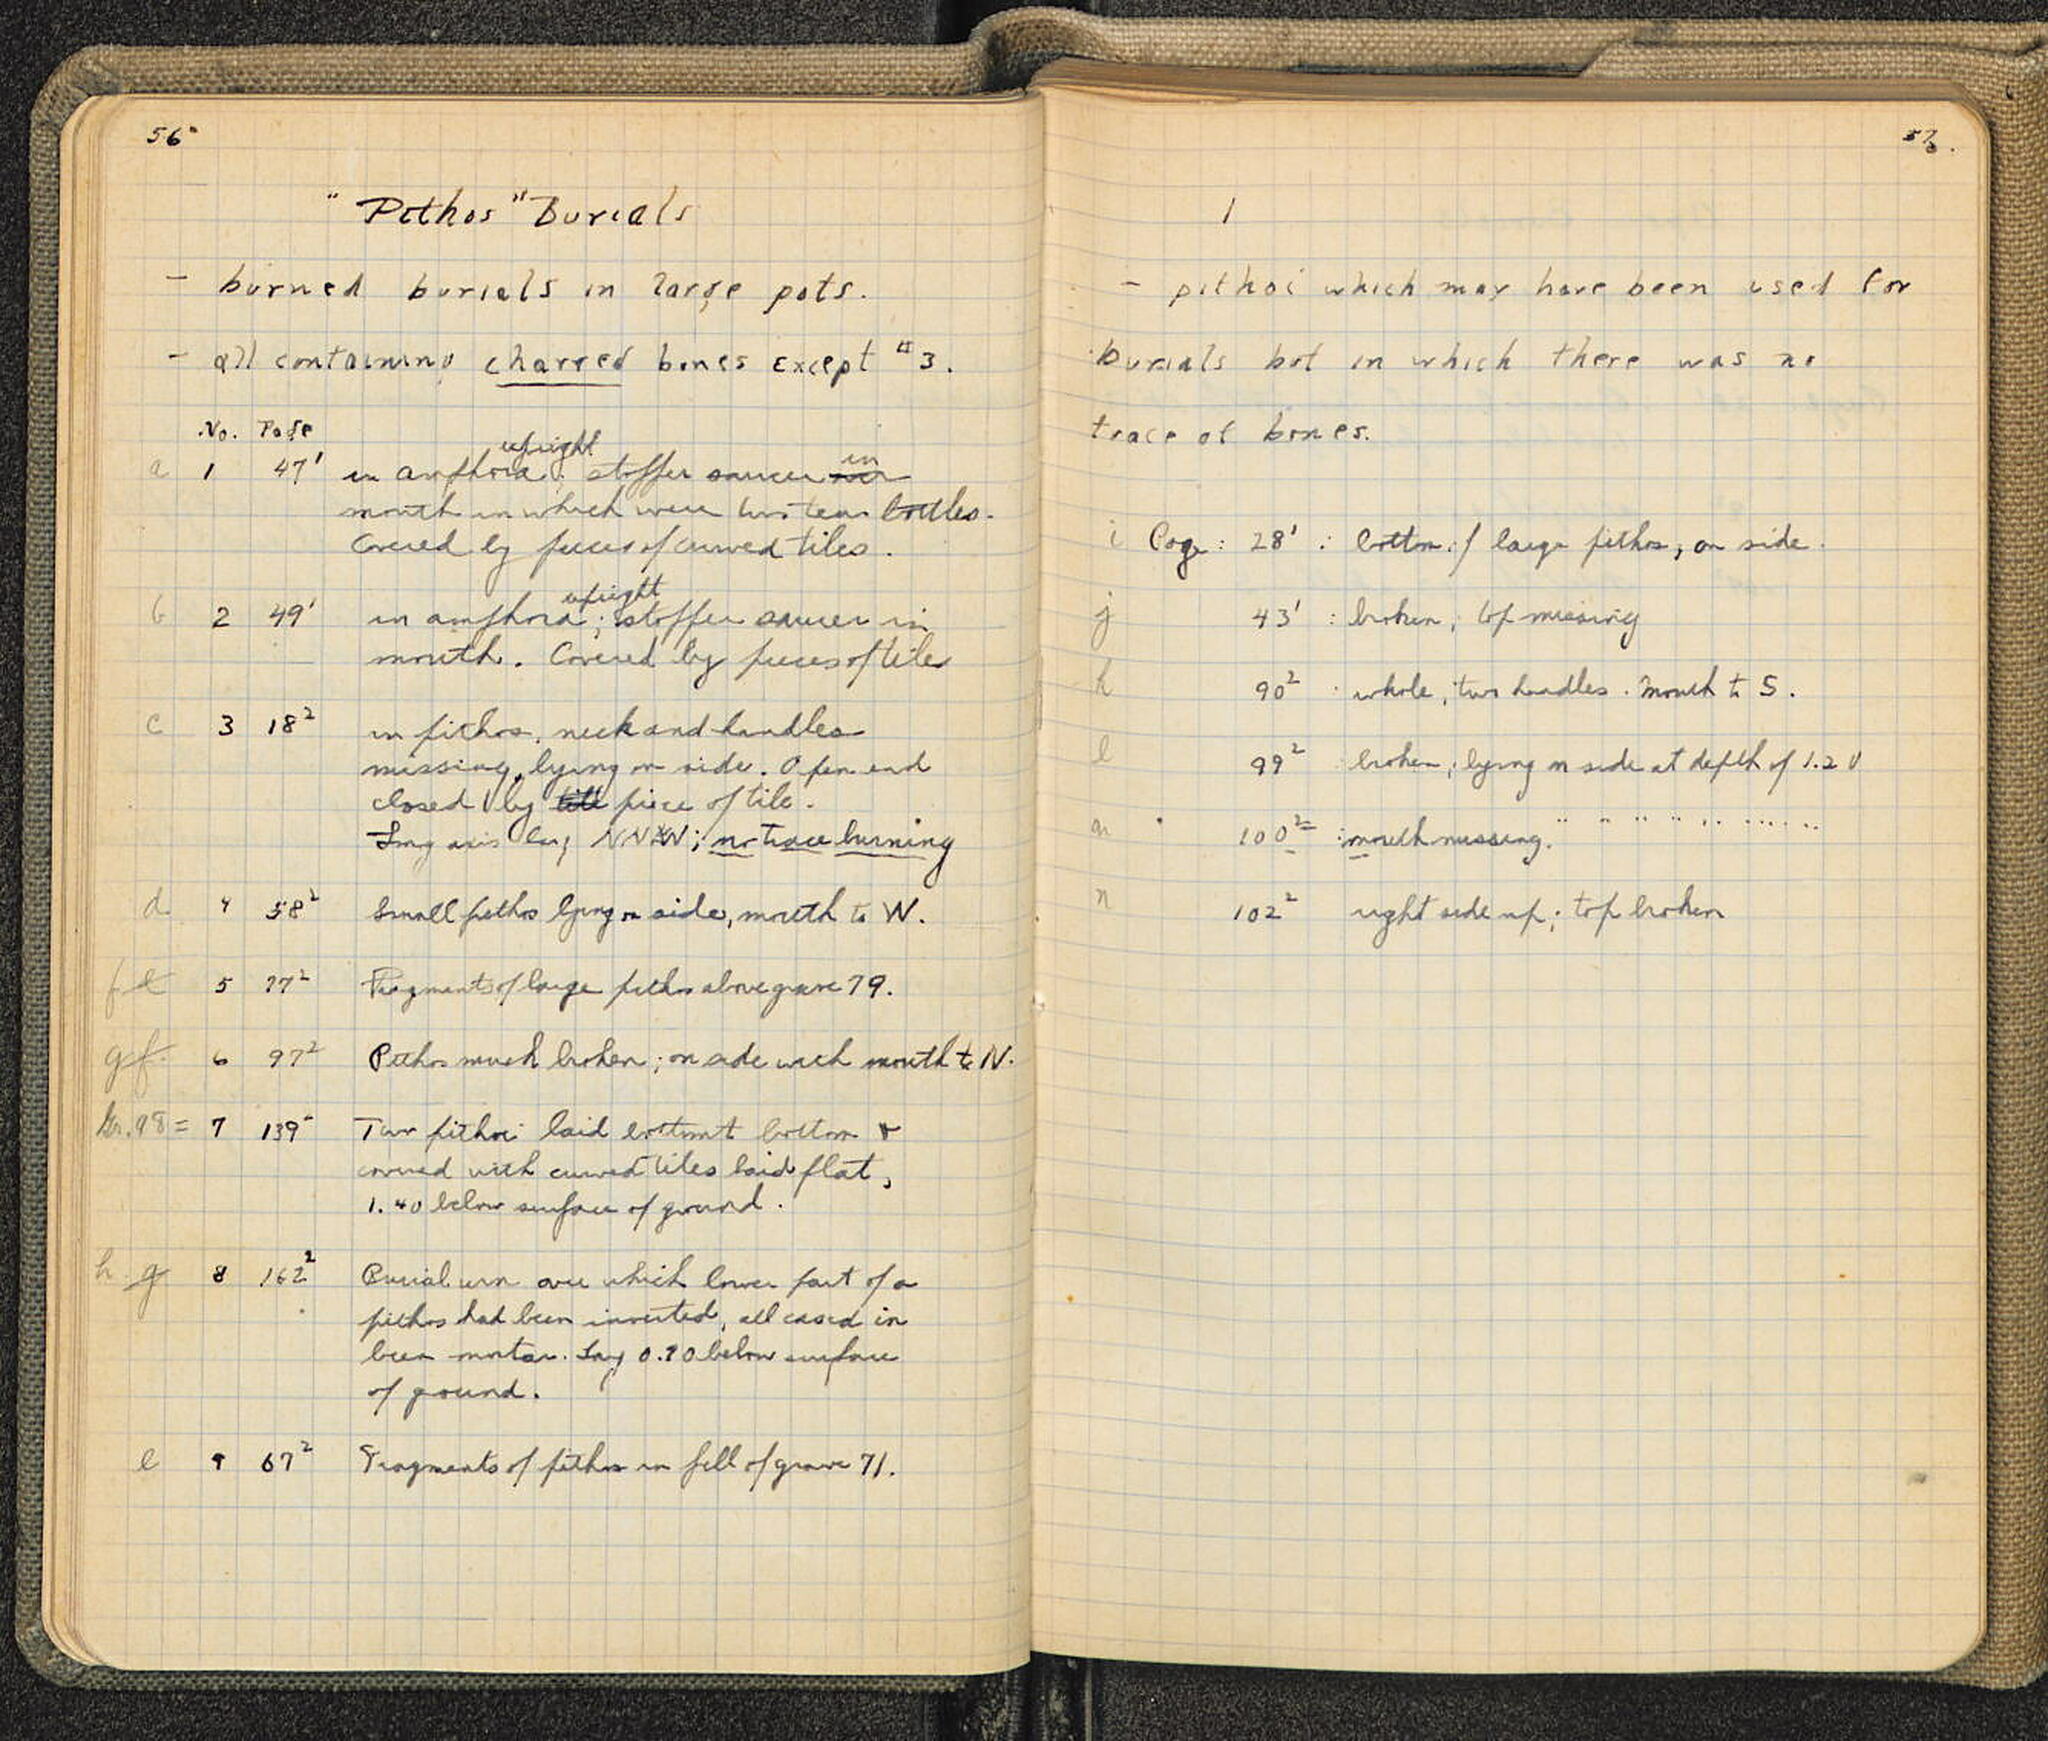 56
"Pithos" Burials
- burned burials in large pots.
- all containing charred bones except #3.
No. Page
upright in
a 1 47' in amphora; stopper saucer over
mouth in which were two tear bottles.
Covered by pieces of curved tiles.
upright
b 2 49' in amphora; stopper saucer in
mouth. Covered by pieces of tiles
c 3 18² in pithos, neck and handles
missing, lying on side. Open end
closed by piece of tile.
Long axis lay NNW; no trace burning
d 4 58² Small pithos lying on side, mouth to W.
f e 5 77² Fragments of large pithos above grave 79.
g f 6 97² Pithos much broken; on side with mouth to N.
Gr. 98 = 7 139² Two pithoi laid bottom to bottom &
covered with curved tiles laid flat,
1.40 below surface of ground.
h g 8 162² Burial urn over which lower part of a
pithos had been inverted, all cased in
mortar. Lay 0.90 below surface
of ground.
e 9 67² Fragments of pithos in fill of grave 71.
57
- pithoi which may have been used for
burials but in which there was no
trace of bones.
i Page: 28': bottom of large pithos, on side.
j 43': broken, top missing
k 90²: whole, two handles. Mouth to S.
l 99² broken, lying on side at depth of 1.20
m 100²: mouth missing. " " " " " " "
n 102² right side up; top broken